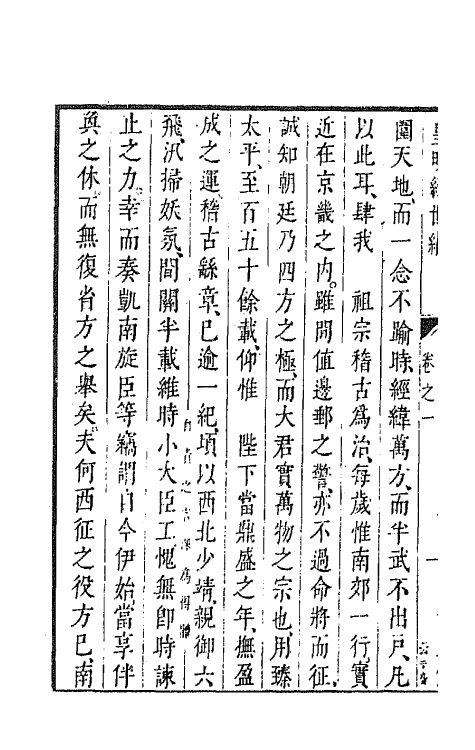 皇明經世編
卷之一
圍天地、而一念不踰時、經緯萬方、而半武不出尺、凡
以此耳、肆我　祖宗稽古爲治、每歲惟南郊一行、實
近在京畿之內。雖間值邊郵之警、亦不過命將而征、
誠知朝廷乃四方之極、而大君實萬物之宗也、用臻
太平、至百五十餘載、仰惟　陛下當鼎盛之年、撫盈
成之運稽古繇章、已逾一紀、頃以西北少靖、親御六
飛、汛掃妖氛、間關半載維時小大臣工愧無卽時諫
止之力、幸而奏凱南旋臣等竊謂自今伊始、當享伴
奐之休、而無復省方之舉矣、夫何西征之役方已、南